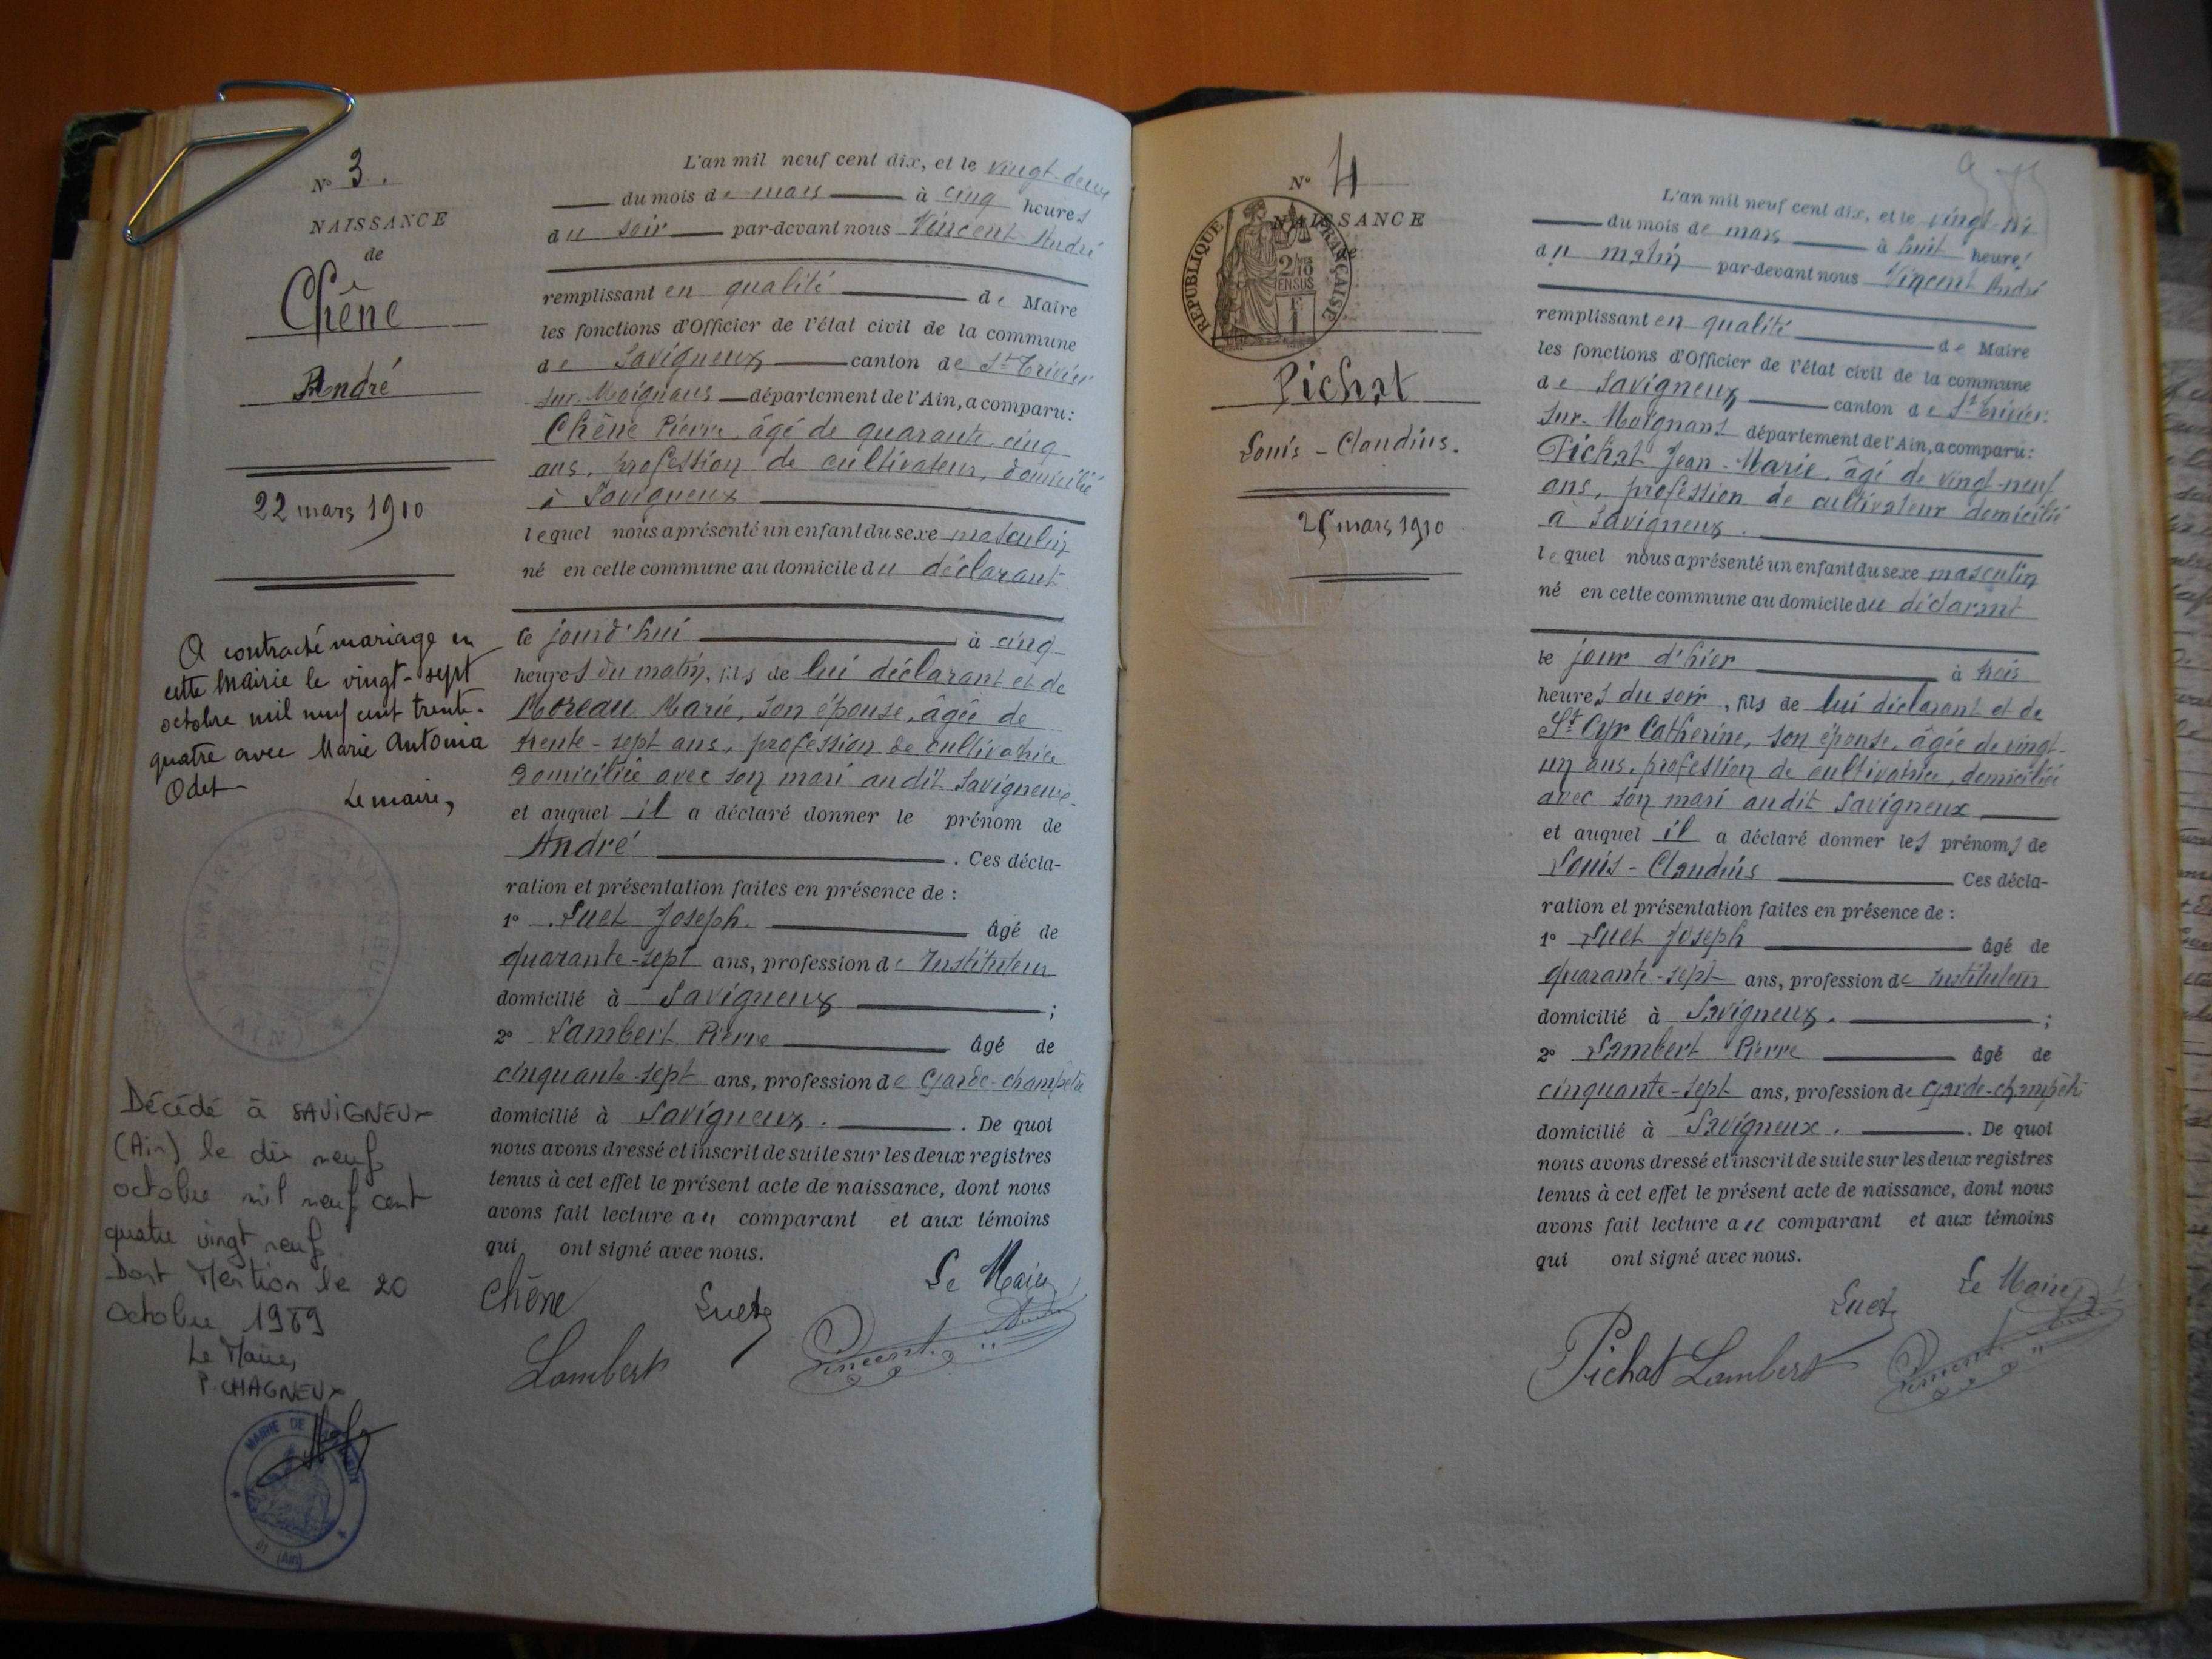 Nº 3.
NAISSANCE
de
Chêne
André
22 mars 1910
A contracté mariage en
cette Mairie le vingt-sept
octobre mil neuf cent trente-
quatre avec Marie Antonia
Odet
Le maire,
Décédé à SAVIGNEUX
(Ain) le dix neuf
octobre mil neuf cent
quatre vingt neuf
Dont Mention le 20
octobre 1989
Le Maire,
P. CHAGNEUX
MAIRIE DE
(AIN)
L'an mil neuf cent dix, et le vingt-deux
du mois de mars à cinq heures
du soir par-devant nous Vincent André
remplissant en qualité de Maire
les fonctions d'Officier de l'état civil de la commune
de Savigneux canton de St Trivier
sur-Moignans département de l'Ain, a comparu:
Chêne Pierre, âgé de quarante-cinq
ans, profession de cultivateur, domicilié
à Savigneux
lequel nous a présenté un enfant du sexe masculin
né en cette commune au domicile du déclarant
le jourd'hui à cinq
heures du matin, fils de lui déclarant et de
Moreau Marie, son épouse, âgée de
trente-sept ans, profession de cultivatrice
domiciliée avec son mari audit Savigneux.
et auquel il a déclaré donner le prénom de
André . Ces décla-
ration et présentation faites en présence de :
1º Suet Joseph. âgé de
quarante-sept ans, profession de Instituteur
domicilié à Savigneux ;
2º Lambert Pierre âgé de
cinquante-sept ans, profession de Garde-champêtre
domicilié à Savigneux. . De quoi
nous avons dressé et inscrit de suite sur les deux registres
tenus à cet effet le présent acte de naissance, dont nous
avons fait lecture au comparant et aux témoins
qui ont signé avec nous.
Chêne Suet Le Maire
Lambert Vincent André
Nº 4
NAISSANCE
de
REPUBLIQUE FRANÇAISE
2/10 EN SUS
Pichat
Louis-Claudius.
25 mars 1910
L'an mil neuf cent dix, et le vingt-six
du mois de mars à huit heures
du matin par-devant nous Vincent André
remplissant en qualité de Maire
les fonctions d'Officier de l'état civil de la commune
de Savigneux canton de St Trivier-
sur-Moignans département de l'Ain, a comparu:
Pichat Jean-Marie, âgé de vingt-neuf
ans, profession de cultivateur domicilié
à Savigneux.
lequel nous a présenté un enfant du sexe masculin
né en cette commune au domicile du déclarant
le jour d'hier à trois
heures du soir, fils de lui déclarant et de
St Cyr Catherine, son épouse, âgée de vingt-
un ans, profession de cultivatrice, domiciliée
avec son mari audit Savigneux
et auquel il a déclaré donner les prénoms de
Louis-Claudius Ces décla-
ration et présentation faites en présence de :
1º Suet Joseph âgé de
quarante-sept ans, profession de Instituteur
domicilié à Savigneux. ;
2º Lambert Pierre âgé de
cinquante-sept ans, profession de Garde-champêtre
domicilié à Savigneux. . De quoi
nous avons dressé et inscrit de suite sur les deux registres
tenus à cet effet le présent acte de naissance, dont nous
avons fait lecture au comparant et aux témoins
qui ont signé avec nous.
Suet Le Maire
Pichat Lambert Vincent André